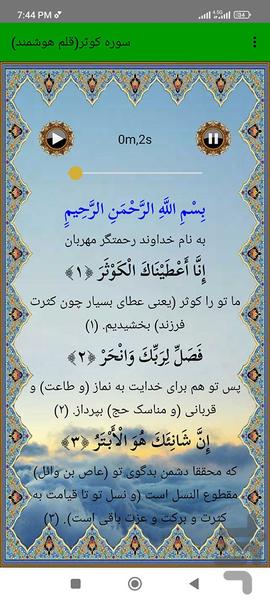 7:44 PM
سوره کوثر(قلم هوشمند)
0m,2s
بِسْمِ اللَّهِ الرَّحْمَنِ الرَّحِيمِ
به نام خداوند رحمتگر مهربان
إِنَّا أَعْطَيْنَاكَ الْكَوْثَرَ ﴿۱﴾
ما تو را کوثر (یعنی عطای بسیار چون کثرت
فرزند) بخشیدیم. (۱)
فَصَلِّ لِرَبِّكَ وَانْحَرْ ﴿۲﴾
پس تو هم برای خدایت به نماز (و طاعت) و
قربانی (و مناسک حج) بپرداز. (۲)
إِنَّ شَانِئَكَ هُوَ الْأَبْتَرُ ﴿۳﴾
که محققا دشمن بدگوی تو (عاص بن وائل)
مقطوع النسل است (و نسل تو تا قیامت به
کثرت و برکت و عزت باقی است). (۳)